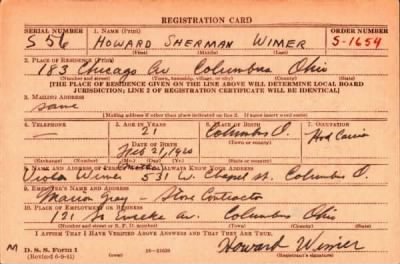 REGISTRATION CARD
SERIAL NUMBER 1. NAME (Print) ORDER NUMBER
S 56 HOWARD SHERMAN WIMER S-1654
(First) (Middle) (Last)
2. PLACE OF RESIDENCE (Print)
183 Chicago Av Columbus Ohio
(Number and street) (Town, township, village, or city) (County) (State)
[THE PLACE OF RESIDENCE GIVEN ON THE LINE ABOVE WILL DETERMINE LOCAL BOARD
JURISDICTION; LINE 2 OF REGISTRATION CERTIFICATE WILL BE IDENTICAL]
3. MAILING ADDRESS
same
[Mailing address if other than place indicated on line 2. If same insert word same]
4. TELEPHONE 5. AGE IN YEARS 6. PLACE OF BIRTH 7. OCCUPATION
— 21 Columbus O. Hod Carrier
DATE OF BIRTH (Town or county)
Feb 21, 1920
(Exchange) (Number) (Mo.) (Day) (Yr.) (State or country)
8. NAME AND ADDRESS OF PERSON WHO WILL ALWAYS KNOW YOUR ADDRESS
Wimer (mother) 531 W. Chapel St. Columbus O.
9. EMPLOYER'S NAME AND ADDRESS
Marion Gray - Stone Contractor
10. PLACE OF EMPLOYMENT OR BUSINESS
121 So Av. Columbus Ohio
(Number and street or R. F. D. number) (Town) (County) (State)
I AFFIRM THAT I HAVE VERIFIED ABOVE ANSWERS AND THAT THEY ARE TRUE.
M D. S. S. Form 1 Howard Wimer
(Revised 6-9-41) (over) (Registrant's signature)